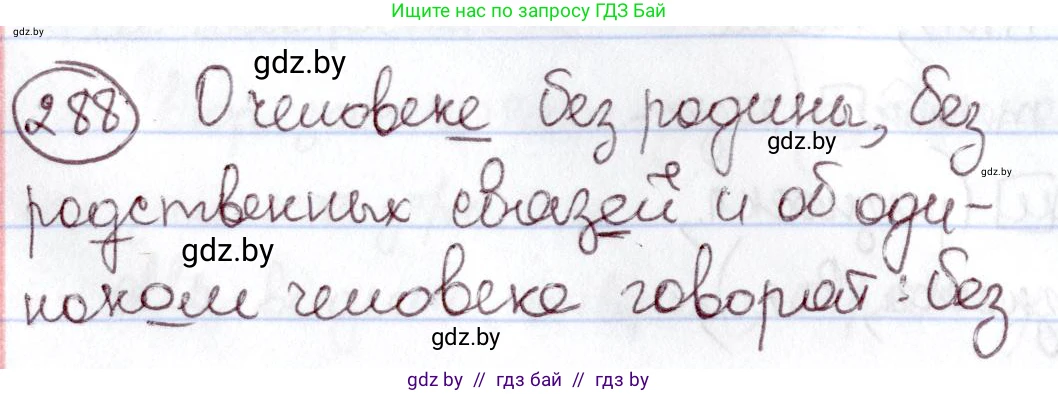 Ищите нас по запросу ГДЗ Бай
gdz.by
gdz.by
288 О человеке без родины, без
gdz.by
gdz.by
родственных связей и об оди-
gdz.by
ноком человека говорят: без
gdz.by
gdz.by // гдз бай // гдз by